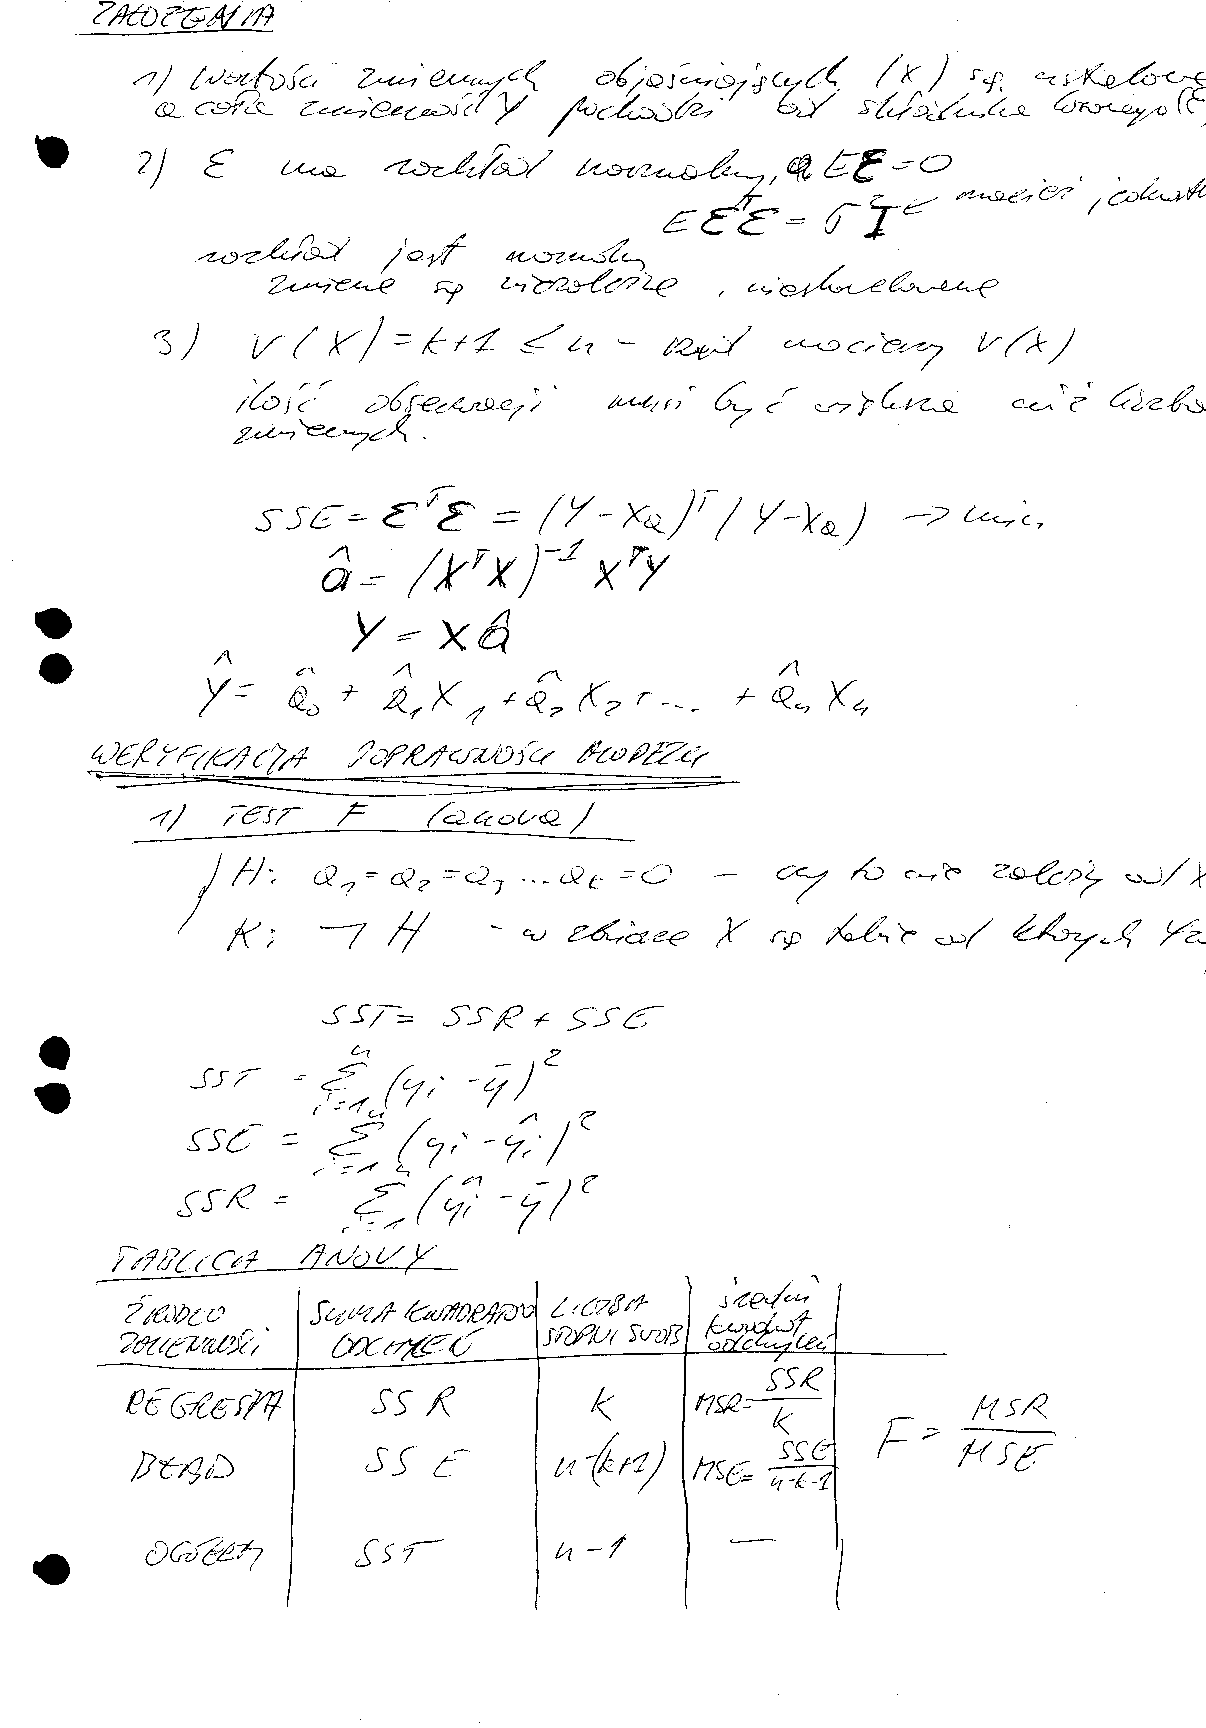 ZAŁOŻENIA
1) Wartości zmiennych objaśniających (X) są ustalone
a cała zmienność Y pochodzi od składnika losowego
2) ε ma rozkład normalny, a Eε=0
Eε^Tε = σ²I ← macierz jednostk
rozkład jest normalny
zmienne są niezależne, nieskorelowane
3) r(X) = k+1 ≤ n – rząd macierzy r(X)
ilość obserwacji musi być większa niż liczba
zmiennych.
SSE = ε^Tε = (Y-Xa)^T (Y-Xa) → min
â = (X^TX)^-1 X^TY
Y = Xâ
Ŷ = â₀ + â₁X₁ + â₂X₂ + ... + â₄X₄
WERYFIKACJA POPRAWNOŚCI MODELU
1) TEST F (anova)
H: a₁=a₂=a₃...aₖ=0 – czy to nie zależy od X
K: ¬H - w zbiorze X są takie od których Y za
SST = SSR + SSE
SST = Σ_{i=1}^{n} (yi - ȳ)²
SSE = Σ_{i=1}^{n} (yi - ŷi)²
SSR = Σ_{i=1}^{n} (ŷi - ȳ)²
TABLICA ANOVY
ŹRÓDŁO ZMIENNOŚCI | SUMA KWADRATÓW ODCHYLEŃ | LICZBA STOPNI SWOB | średni kwadrat odchyleń
REGRESJA | SSR | k | MSR = SSR/k
F = MSR/MSE
BŁĄD | SSE | n-(k+1) | MSE = SSE/n-k-1
OGÓLNY | SST | n-1 | —